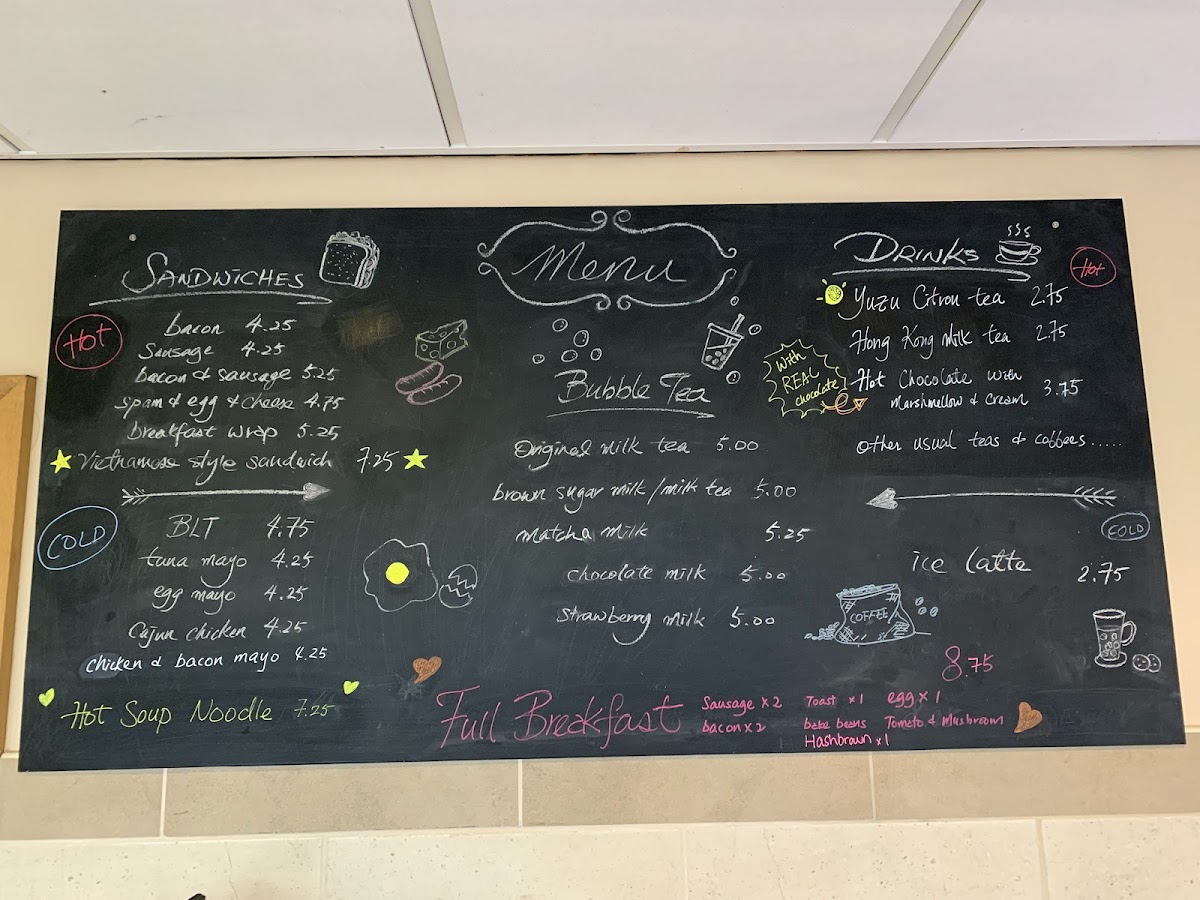 Menu
SANDWICHES
HOT
bacon 4.25
Sausage 4.25
bacon & sausage 5.25
spam & egg & cheese 4.75
breakfast wrap 5.25
Vietnamese style sandwich 7.25
COLD
BLT 4.75
tuna mayo 4.25
egg mayo 4.25
Cajun chicken 4.25
chicken & bacon mayo 4.25
Hot Soup Noodle 7.25
Bubble Tea
Original milk tea 5.00
brown sugar milk/milk tea 5.00
matcha milk 5.25
chocolate milk 5.00
strawberry milk 5.00
DRINKS
Hot
Yuzu Citron tea 2.75
Hong Kong milk tea 2.75
With
REAL
chocolate
Hot Chocolate with
Marshmellow & Cream 3.75
other usual teas & coffees.....
COLD
ice latte 2.75
COFFEE
8.75
Full Breakfast
Sausage x 2 Toast x 1 egg x 1
bacon x 2 bake beans Tomato & Mushroom
Hashbrown x 1